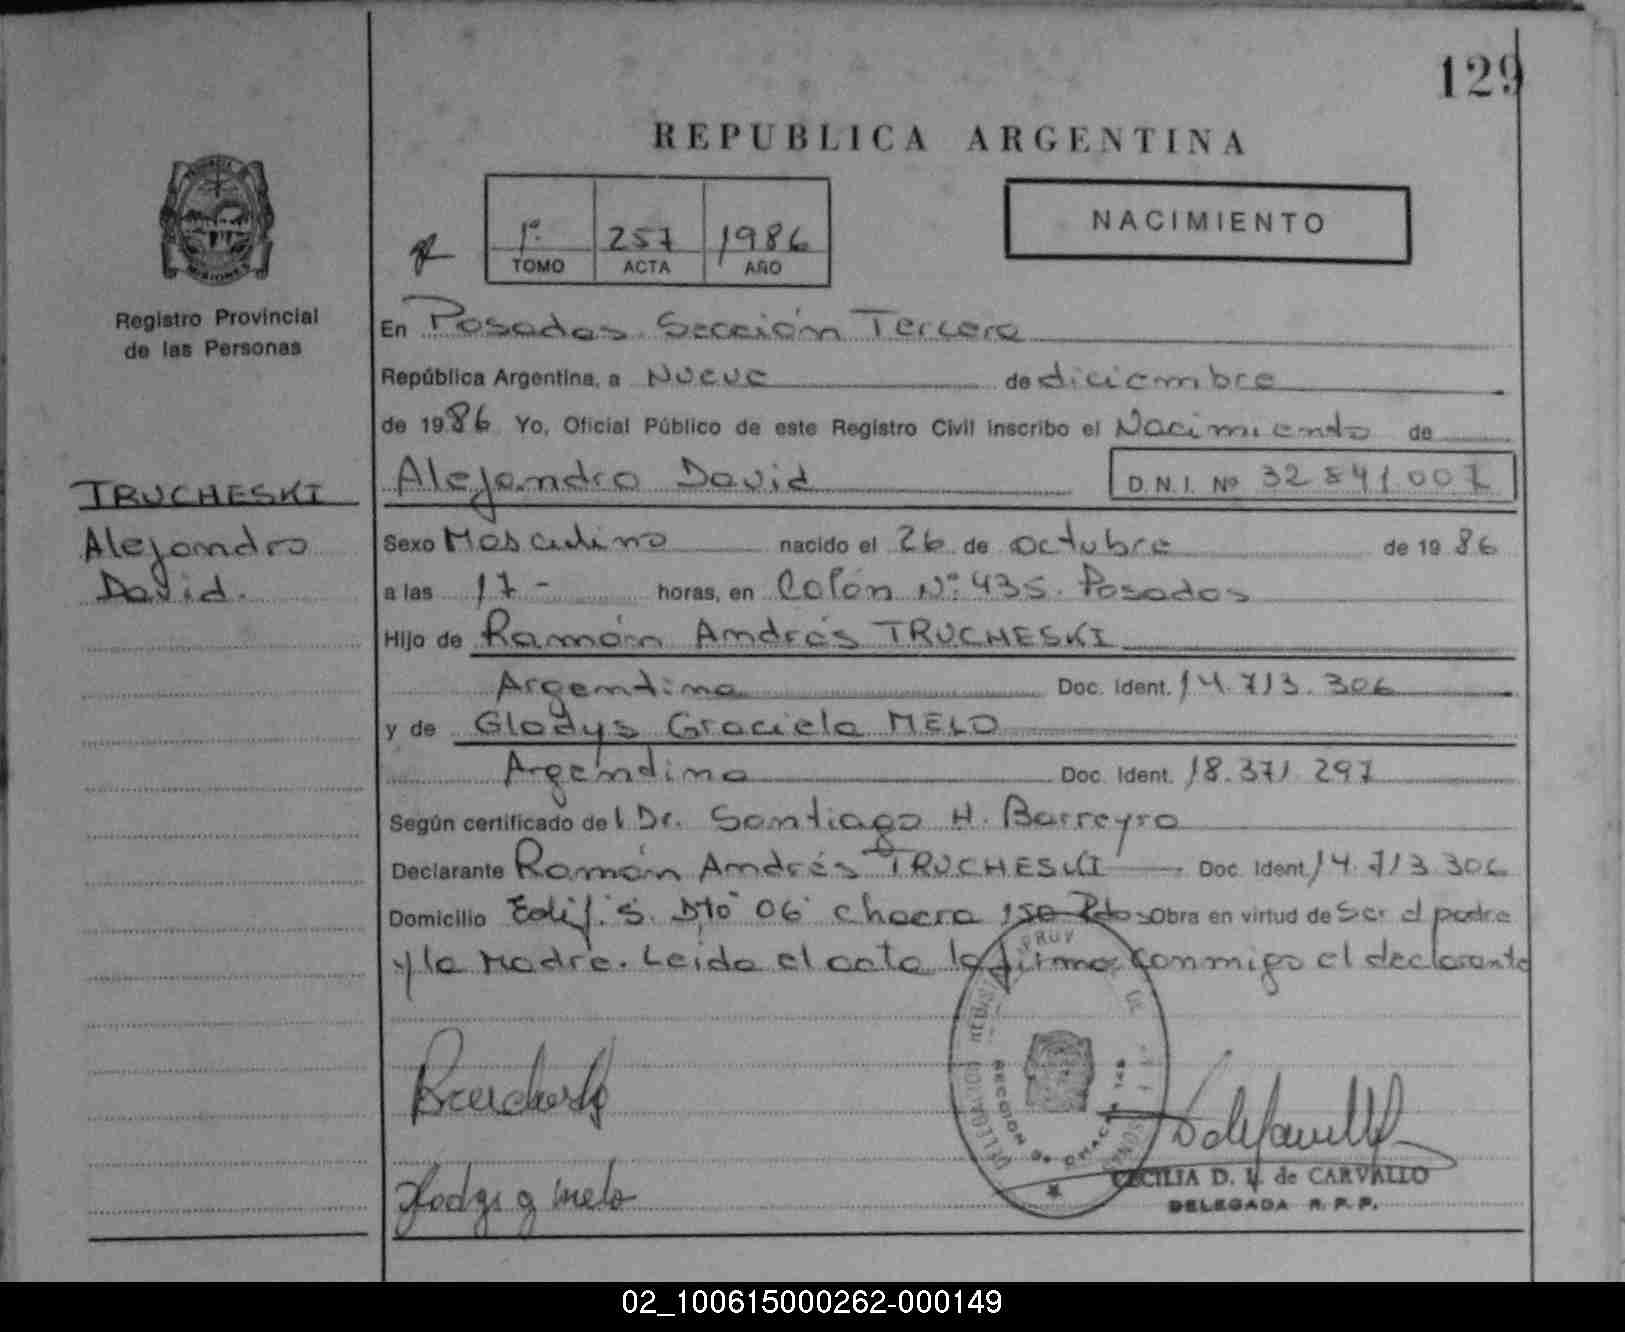 129
REPUBLICA ARGENTINA
1º 257 1986
TOMO ACTA AÑO
NACIMIENTO
MISIONES
Registro Provincial
de las Personas
TRUCHESKI
Alejandro
David.
En Posadas Sección Tercera
República Argentina, a Nueve de diciembre
de 1986 Yo, Oficial Público de este Registro Civil inscribo el Nacimiento de
Alejandro David D.N.I. Nº 32.841.007
Sexo Masculino nacido el 26 de octubre de 1986
a las 17- horas, en Colón Nº 435. Posadas
Hijo de Ramón Andrés TRUCHESKI
Argentina Doc. Ident. 14.713.306
y de Gladys Graciela MELO
Argentina Doc. Ident. 18.371.297
Según certificado del Dr. Santiago H. Barreyro
Declarante Ramón Andrés TRUCHESKI Doc. Ident. 14.713.306
Domicilio Edif. 5. Dto 06 chacra 150 Pdas. Obra en virtud de Ser el padre
y la Madre. Leida el acta la firma conmigo el declarante
Gladys g melo
CECILIA D. V. de CARVALLO
DELEGADA R. P. P.
02_100615000262-000149